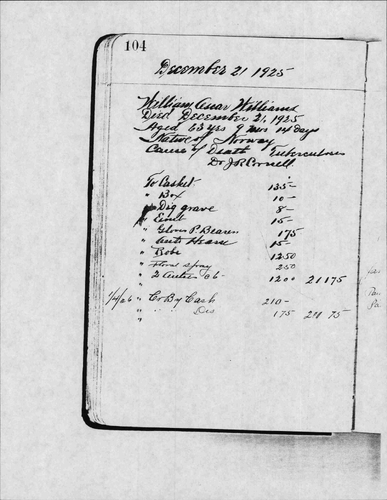 104
December 21 1925
William Oscar Williams
Died December 21, 1925
Aged 63 yrs 9 mos 14 days
Native of Norway
Cause of Death Tuberculosis
Dr J.R. Cornell
To Casket 135-
" Box 10-
" Dig grave 8-
" Emb 15-
" Gloves P. Bearers 175
" Auto Hearse 15-
" Robe 1250
" Floral Spray 250
" 2 Autos @ 6- 1200 21175
1/4/26 " Cr By Cash 210-
" " " Dis 175 211 75